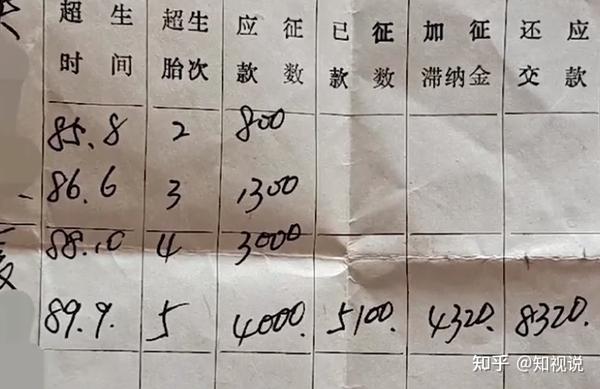 超生时间 超生胎次 应征款数 已征款数 加征滞纳金 还应交款
85.8 2 800
86.6 3 1300
88.10 4 3000
89.9. 5 4000. 5100. 4320. 8320.
知乎 @知视说